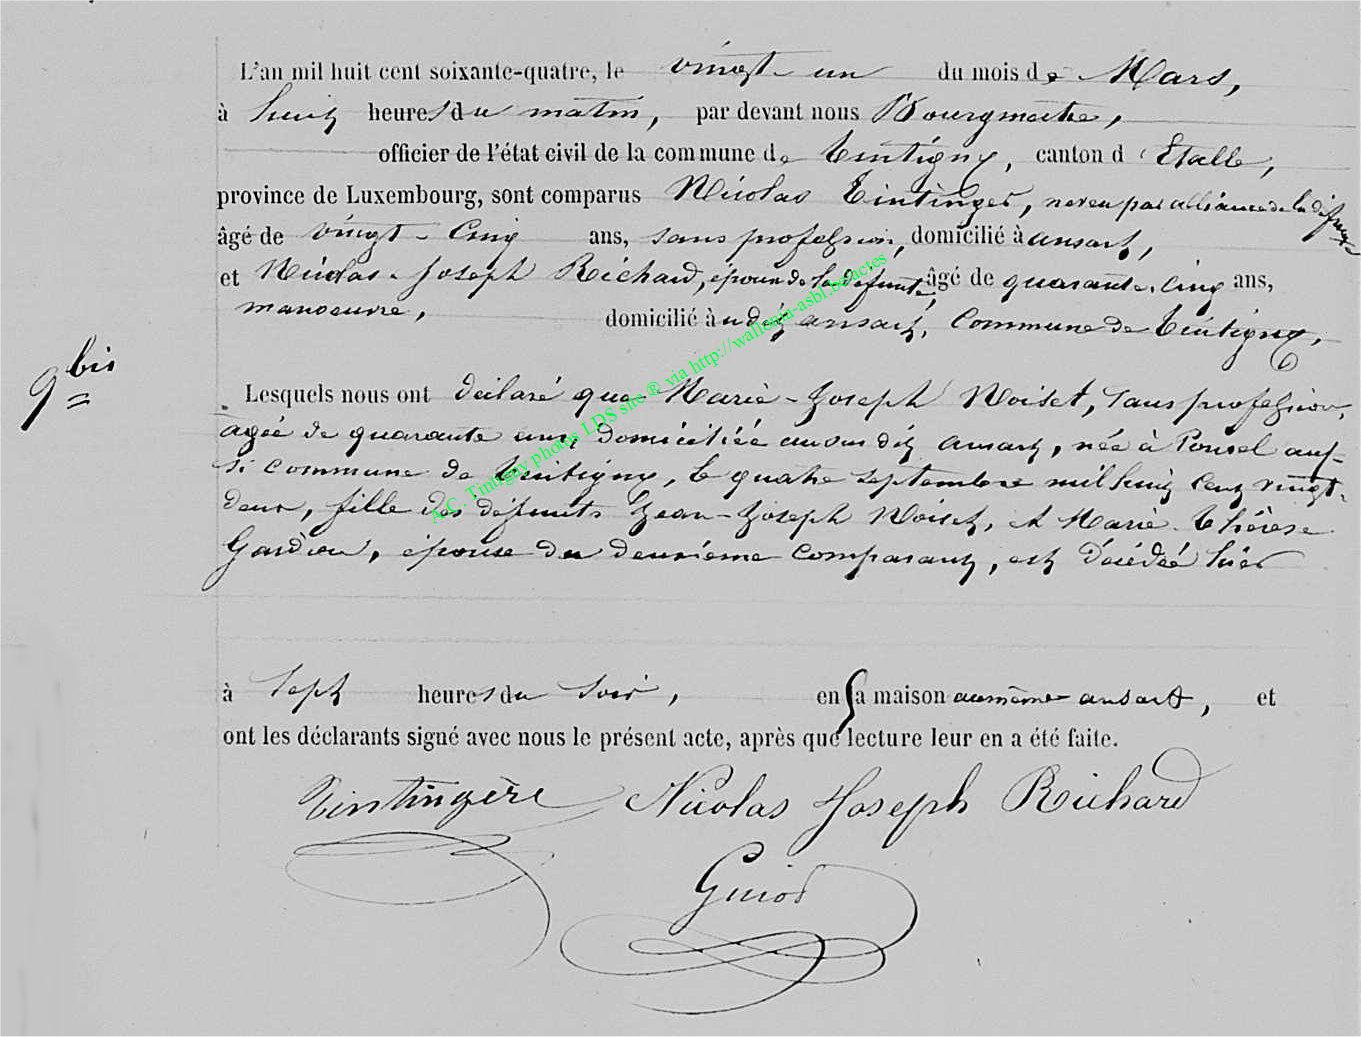 L'an mil huit cent soixante-quatre, le vingt-un du mois de Mars,
à huit heures du matin, par devant nous Bourgmestre,
officier de l'état civil de la commune de Tintigny, canton d'Etalle,
province de Luxembourg, sont comparus Nicolas Tintinger, neveu par alliance de la défunte
âgé de vingt-cinq ans, sans profession, domicilié à ansart,
et Nicolas-Joseph Richard, époux de la défunte, âgé de quarante-cinq ans,
manoeuvre, domicilié à udit ansart, Commune de Tintigny,
9 bis
Lesquels nous ont déclaré que Marie-Joseph Noiset, sans profession,
agée de quarante un, domiciliée au sus dit ansart, née à aus-
si commune de Tintigny, le quatre septembre mil huit cent vingt-
deux, fille des défunts Jean-Joseph Noiset, et Marie Thérèse
épouse du deuxième comparant, est décédée hier
à sept heures du soir, en sa maison au même ansart, et
ont les déclarants signé avec nous le présent acte, après que lecture leur en a été faite.
Tintingère Nicolas Joseph Richard
Guiot
A.C. Tintigny photos LDS site ® via http://wallonia-asbl.be/actes